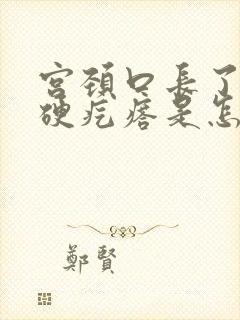 宮頚口長了
硬疙瘩是怎
鄭賢